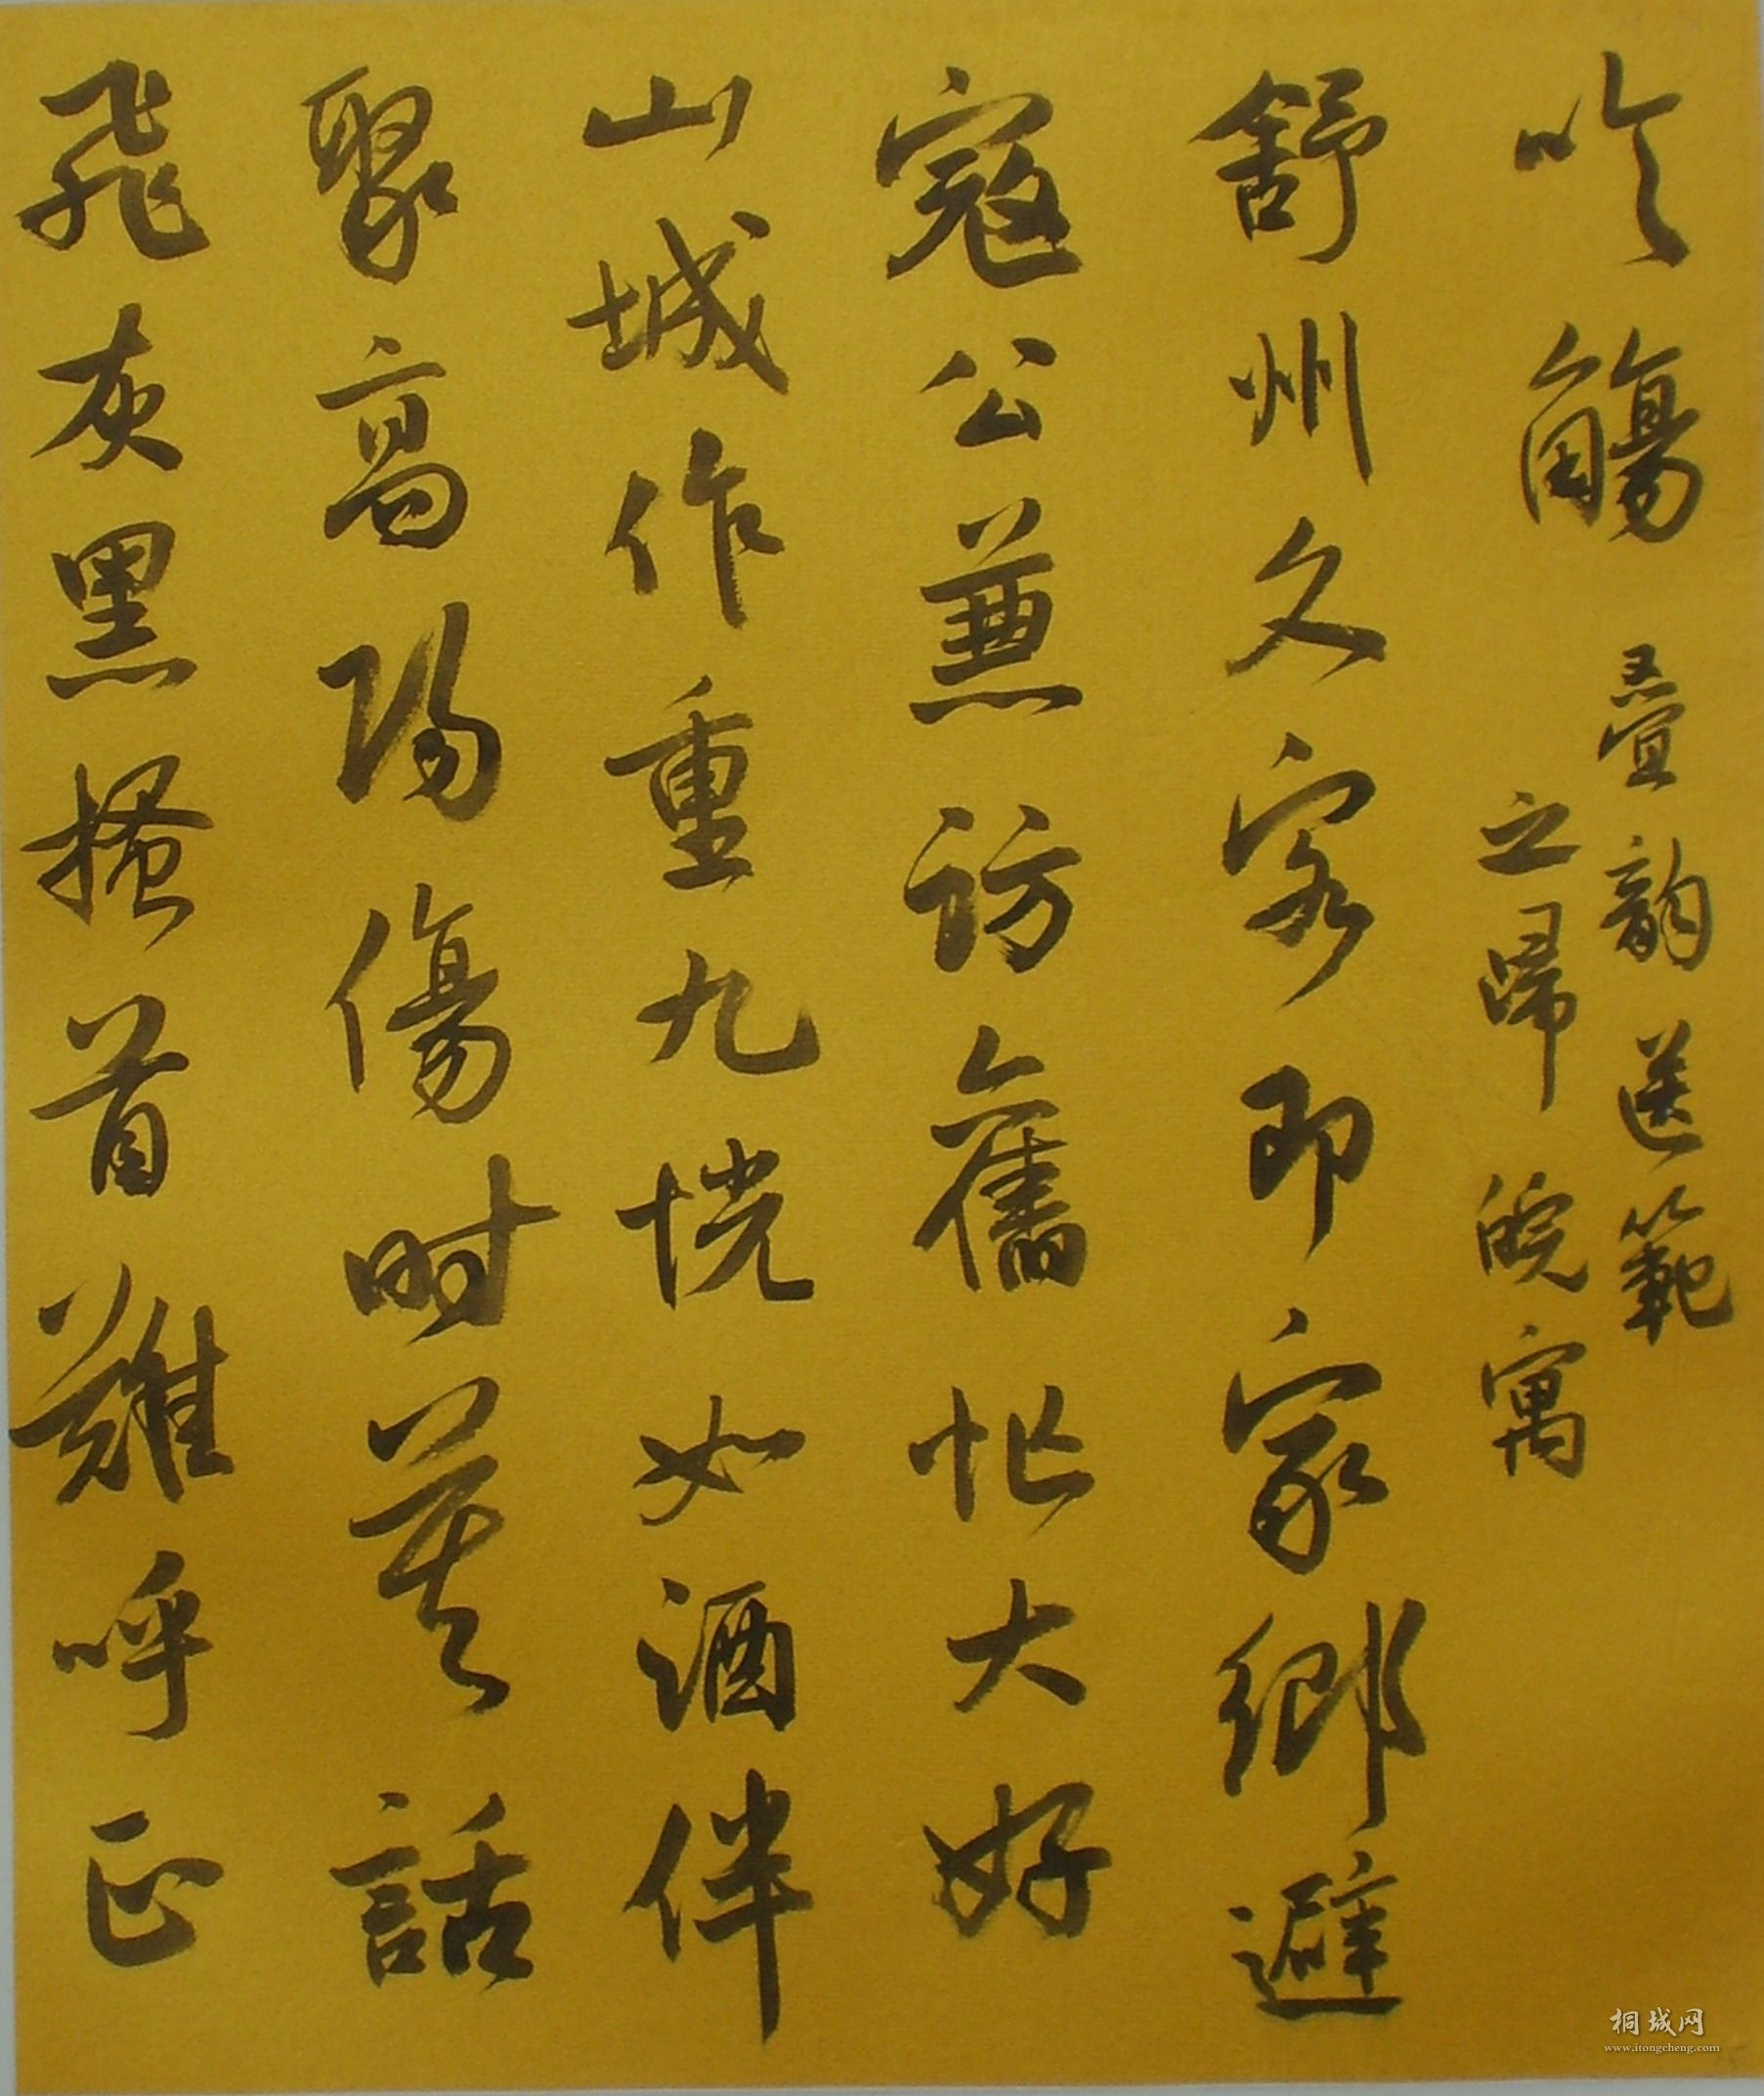 吟觴
叠韵送範
之歸皖寓
舒州久客即家鄉避
寇公兼訪舊忙大好
山城作重九恍如酒伴
聚高陽傷時莫話
飛灰黑搔首難呼正
桐城网
www.itongcheng.com